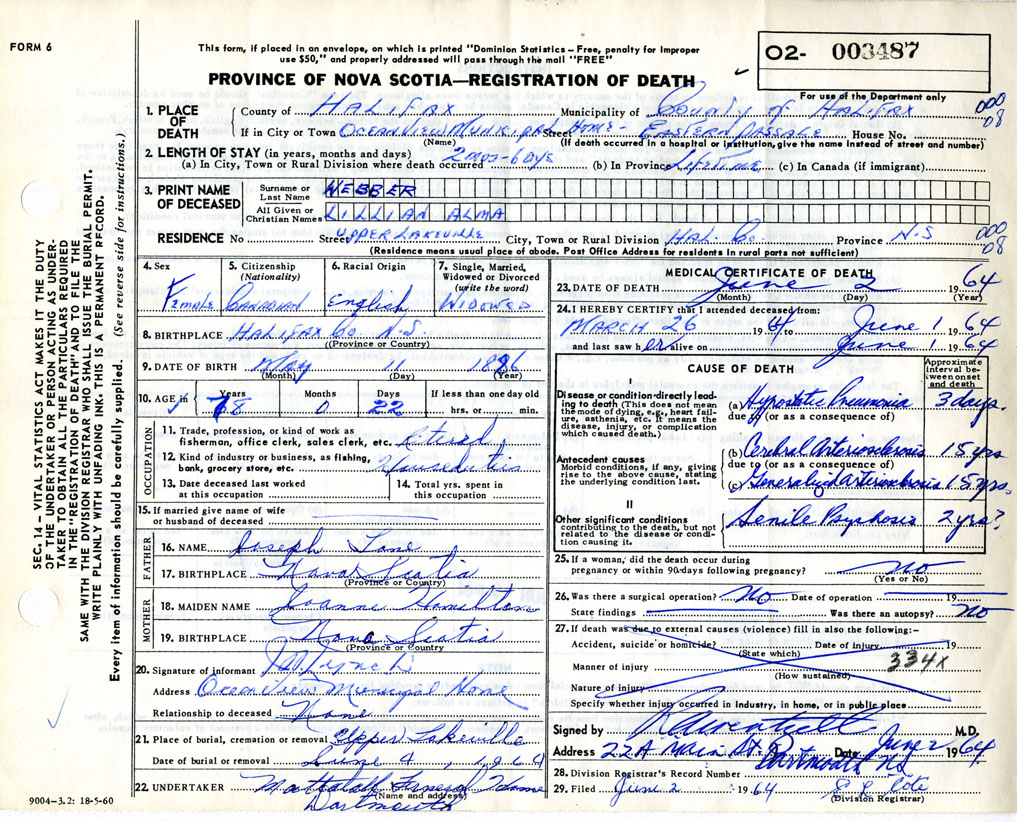 FORM 6
This form, if placed in an envelope, on which is printed "Dominion Statistics – Free, penalty for improper
use $50," and properly addressed will pass through the mail "FREE"
PROVINCE OF NOVA SCOTIA—REGISTRATION OF DEATH
O2- 003487
For use of the Department only
SEC. 14 – VITAL STATISTICS ACT MAKES IT THE DUTY
OF THE UNDERTAKER OR PERSON ACTING AS UNDER-
TAKER TO OBTAIN ALL THE PARTICULARS REQUIRED
IN THE "REGISTRATION OF DEATH" AND TO FILE THE
SAME WITH THE DIVISION REGISTRAR WHO SHALL ISSUE THE BURIAL PERMIT.
WRITE PLAINLY WITH UNFADING INK. THIS IS A PERMANENT RECORD.
Every item of information should be carefully supplied. (See reverse side for instructions.)
1. PLACE OF DEATH County of HALIFAX Municipality of COUNTY OF HALIFAX 000 08
If in City or Town OCEAN VIEW MUNICIPAL Street HOME - EASTERN PASSAGE House No.
(Name) (If death occurred in a hospital or institution, give the name instead of street and number)
2. LENGTH OF STAY (in years, months and days)
(a) In City, Town or Rural Division where death occurred 2 mos - 6 dys (b) In Province LIFETIME (c) In Canada (if immigrant)
3. PRINT NAME OF DECEASED Surname or Last Name WEBBER
All Given or Christian Names LILLIAN ALMA
RESIDENCE No Street UPPER LAKEVILLE City, Town or Rural Division HAL. Co. Province N.S 000 08
(Residence means usual place of abode. Post Office Address for residents in rural parts not sufficient)
4. Sex Female
5. Citizenship (Nationality) Canadian
6. Racial Origin English
7. Single, Married, Widowed or Divorced (write the word) WIDOWED
8. BIRTHPLACE HALIFAX Co N.S
(Province or Country)
9. DATE OF BIRTH MAY 11 1886
(Month) (Day) (Year)
10. AGE in Years 78 Months 0 Days 22 If less than one day old hrs. or min.
OCCUPATION
11. Trade, profession, or kind of work as fisherman, office clerk, sales clerk, etc. retired
12. Kind of industry or business, as fishing, bank, grocery store, etc. Houseduties
13. Date deceased last worked at this occupation
14. Total yrs. spent in this occupation
15. If married give name of wife or husband of deceased
FATHER
16. NAME Joseph
17. BIRTHPLACE Nova Scotia
(Province or Country)
MOTHER
18. MAIDEN NAME Joanne Hamilton
19. BIRTHPLACE Nova Scotia
(Province or Country)
20. Signature of informant Lynch
Address Ocean View Municipal Home
Relationship to deceased None
21. Place of burial, cremation or removal Upper Lakeville
Date of burial or removal June 4, 1964
22. UNDERTAKER Mattatall Funeral Home
(Name and address)
Dartmouth
9004–3.2: 18-5-60
MEDICAL CERTIFICATE OF DEATH
23. DATE OF DEATH June 2 1964
(Month) (Day) (Year)
24. I HEREBY CERTIFY that I attended deceased from:
MARCH 26 1964 to June 1 1964
and last saw her alive on June 1 1964
CAUSE OF DEATH
Approximate interval between onset and death
I
Disease or condition directly leading to death (This does not mean the mode of dying, e.g., heart failure, asthenia, etc. It means the disease, injury, or complication which caused death.)
(a) Hypostatic Pneumonia 3 days.
due to (or as a consequence of)
Antecedent causes
Morbid conditions, if any, giving rise to the above cause, stating the underlying condition last.
(b) Cerebral Arteriosclerosis 15 yrs
due to (or as a consequence of)
(c) Generalized arteriosclerosis 15 yrs.
II
Other significant conditions contributing to the death, but not related to the disease or condition causing it.
Senile Psychosis 2 yrs?
25. If a woman, did the death occur during pregnancy or within 90 days following pregnancy? no
(Yes or No)
26. Was there a surgical operation? no Date of operation 19
State findings Was there an autopsy? no
27. If death was due to external causes (violence) fill in also the following:–
Accident, suicide or homicide? Date of injury 19
(State which)
334x
Manner of injury
(How sustained)
Nature of injury
Specify whether injury occurred in industry, in home, or in public place
Signed by M.D.
Address 22A Main St. Dartmouth NS Date June 2 1964
28. Division Registrar's Record Number
29. Filed June 2 1964
(Division Registrar)